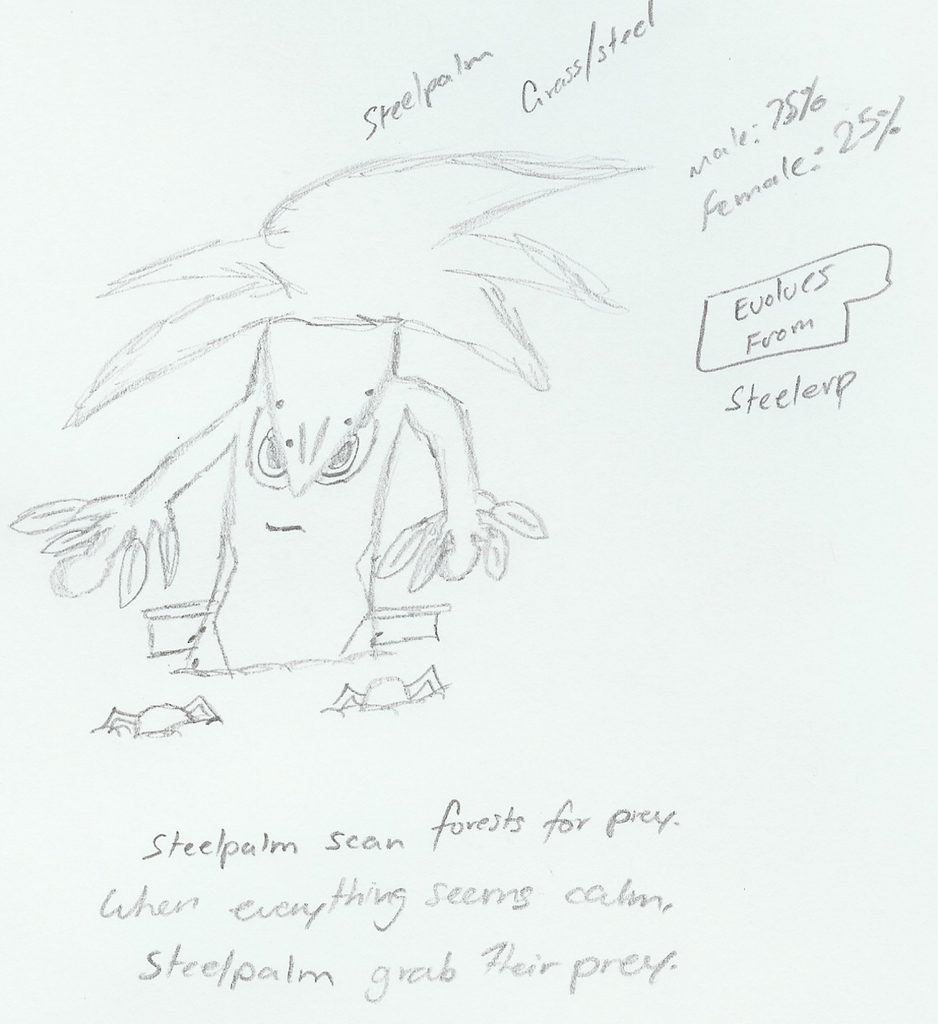 Steelpalm
Grass/steel
male: 75%
female: 25%
Evolves
From
Steelerp
Steelpalm scan forests for prey.
When everything seems calm,
Steelpalm grab their prey.